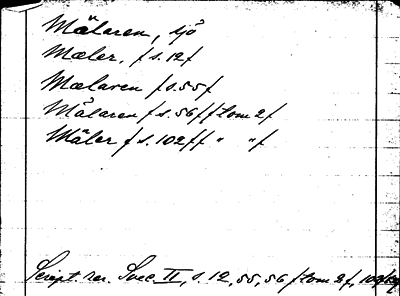 Mälaren, sjö
Mæler, f s. 12 f
Mælaren f s. 55 f
Mälaren f s. 56 f f tom 2 f
Mäler f s. 102 f f " " f
Script. rer. Svec. II, s. 12, 55, 56 f tom 2 f, 102